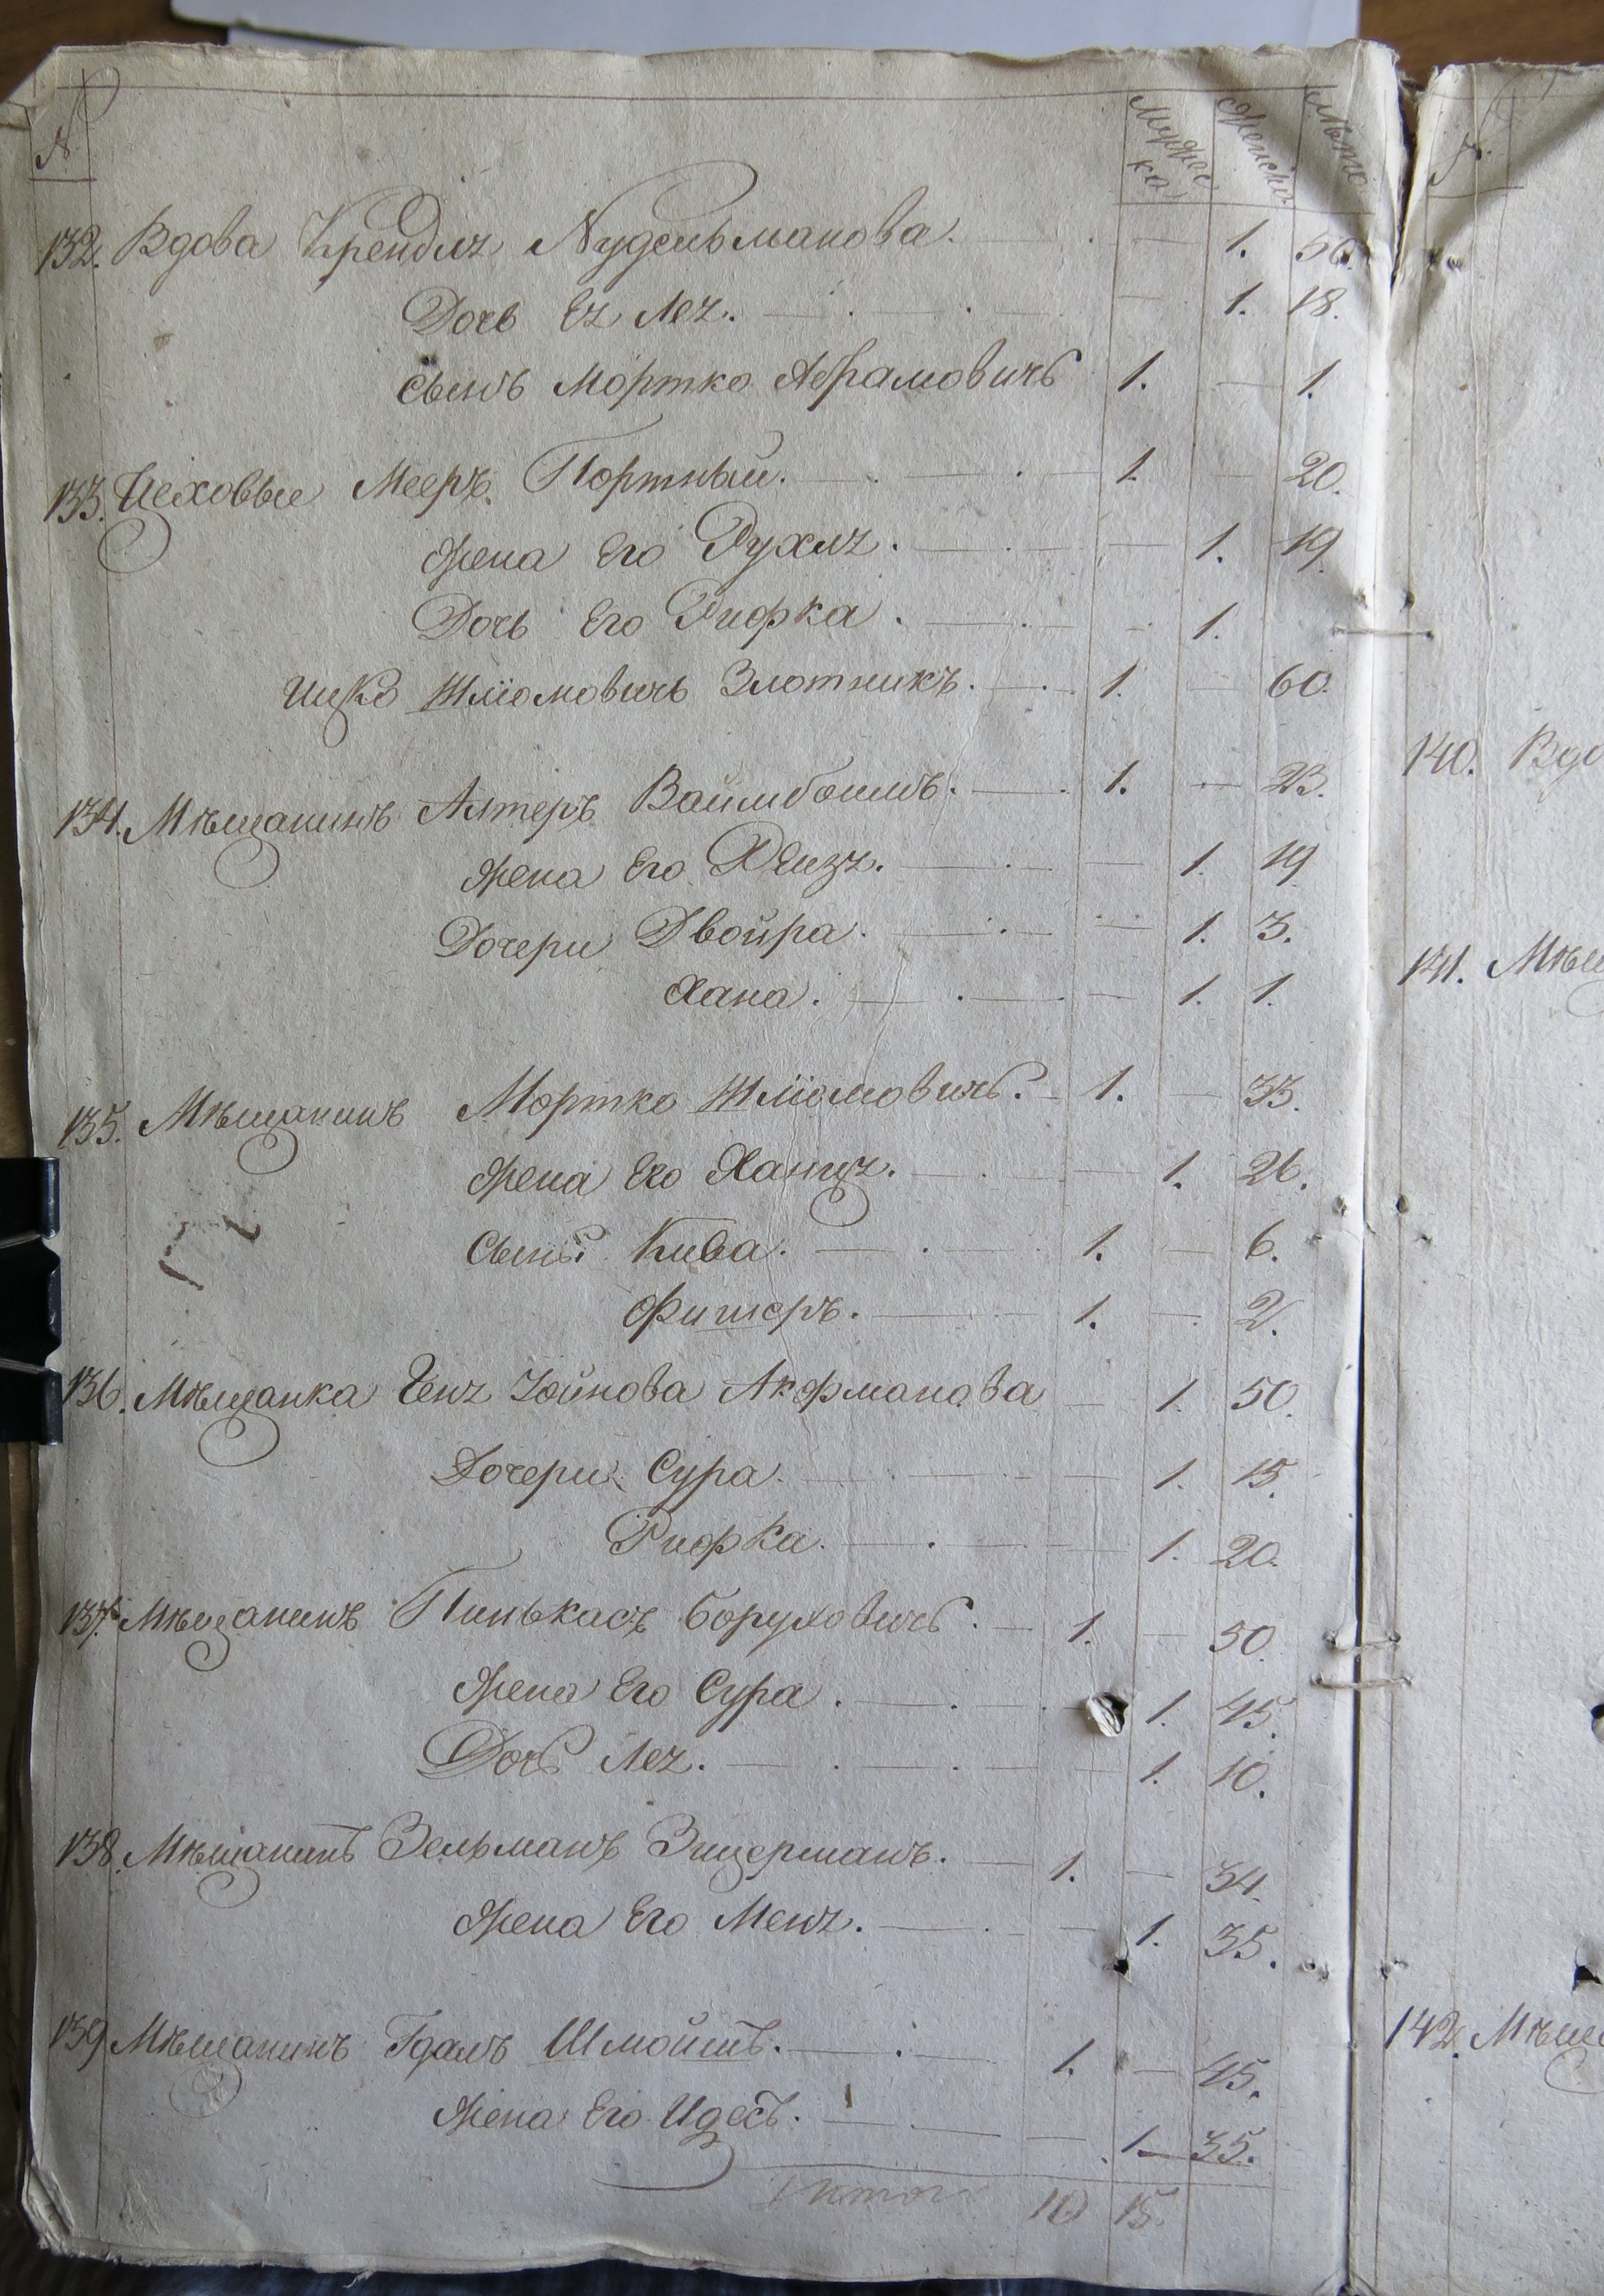 № Мужеска Женска Лѣта
132. Вдова Крендля Нудельманова. — 1. 50.
Дочь Ея Лея. — 1. 18.
Сынъ Мортко Абрамовичь 1. — 1.
133. Цеховые Мееръ Портный. 1. — 20.
Жена Его Рухля. — 1. 19.
Дочь Его Рифка. — 1.
Ицко Шліомовичь Злотникъ. 1. — 60.
134. Мѣщанинъ Алтеръ 1. — 23.
Жена Его — 1. 19
Дочери Двойра. — 1. 3.
Хана. — 1. 1.
135. Мѣщанинъ Мортко Шліомовичь. 1. — 33.
Жена Его Ханця. — 1. 26.
Сыны Кива. 1. — 6.
Фишеръ. 1. — 2.
136. Мѣщанка Геня Акфманова — 1. 50.
Дочери Сура. — 1. 15.
Рифка. — 1. 20.
137. Мѣщанинъ Пинькасъ Боруховичь. 1. — 50.
Жена Его Сура. — 1. 45.
Дочь Лея. — 1. 10.
138. Мѣщанинъ Зельманъ Зицерманъ. 1. — 34.
Жена Его Меня. — 1. 35.
139 Мѣщанинъ Гдаль Шмойшъ. 1. — 45.
Жена Его Идесъ. — 1. — 35.
Итого 10 15.
140. Вдо
141. Мѣщ
142. Мѣща